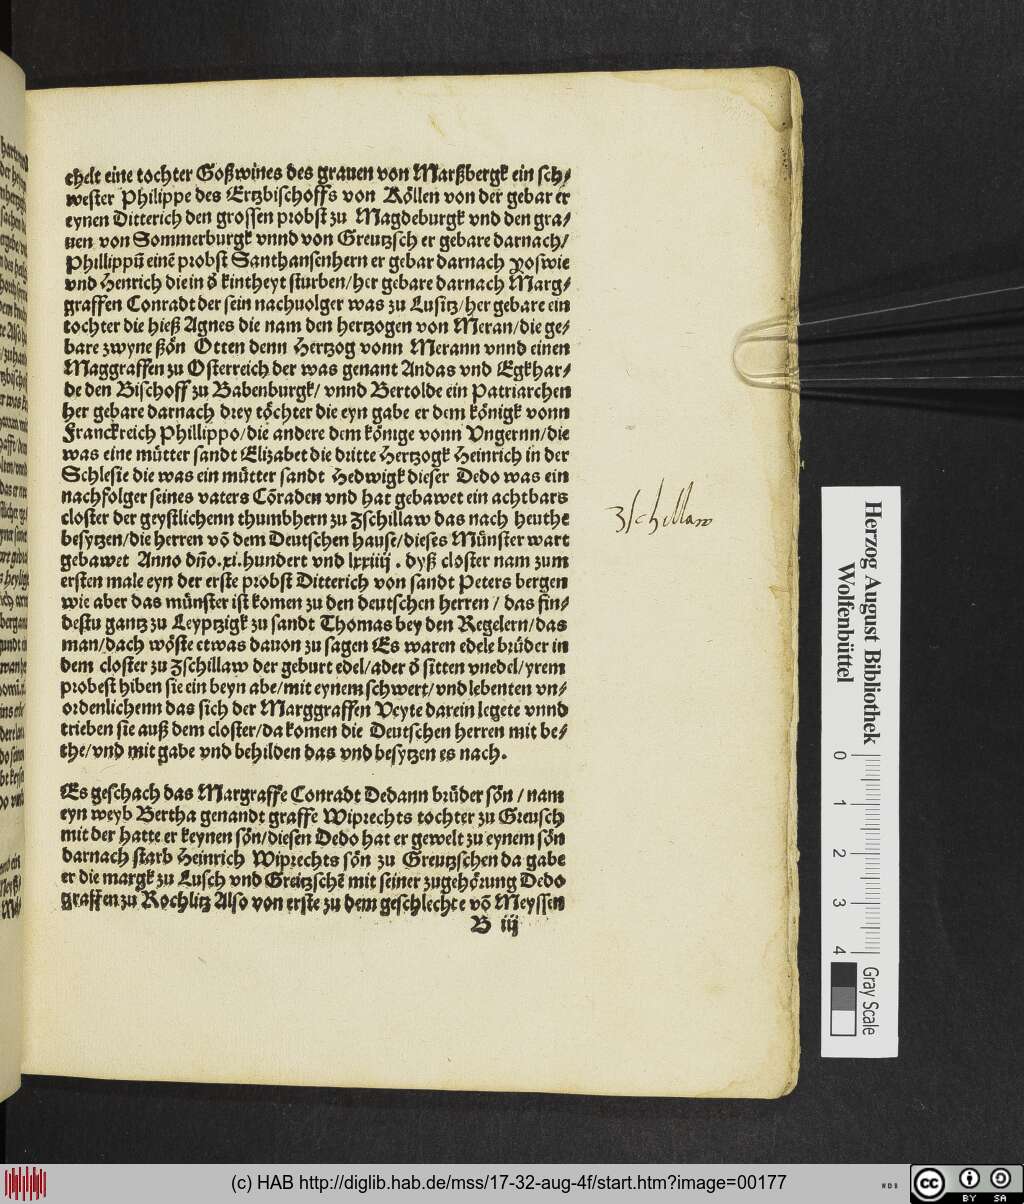 chelt eine tochter Goßwines des grauen von Marßbergk ein sch/
wester Philippe des Ertzbischoffs vonKöllen von der gebar er
eynen Ditterich den grossen probst zu Magdeburgk vnd den gra/
uen von Sommerburgk vnnd von Greutzsch er gebare darnach/
Phillippū einē probst Santhansenhern er gebar darnach yoswie
vnd Henrich die in ð kintheyt sturben/her gebare darnach Marg/
graffen Conradt der sein nachuolger was zu Lusitz/her gebare ein
tochter die hieß Agnes die nam den hertzogen von Meran/die ge/
bare zwyne ßön Otten denn Hertzog vonn Merann vnnd einen
Maggraffen zu Osterreich der was genant Andas vnd Egkhar/
de den Bischoff zu Babenburgk/ vnnd Bertolde ein Patriarchen
her gebare darnach drey töchter die eyn gabe er dem königk vonn
Franckreich Phillippo/die andere dem könige vonn Vngernn/die
was eine mütter sandt Elizabet die dritte Hertzogk Heinrich in der
Schlesie die was ein mütter sandt Hedwigk dieser Dedo was ein
nachfolger seines vaters Cōraden vnd hat gebawet ein achtbars
closter der geystlichenn thumbhern zu Zschillaw das nach heuthe
besytzen/die herren vō dem Deutschen hause/dieses Münster wart
gebawet Anno dño.xi.hundert vnd lxxiiij . dyß closter nam zum
ersten male eyn der erste probst Ditterich von sandt Peters bergen
wie aber das münster ist komen zu den deutschen herren / das fin/
destu gantz zu Leyptzigk zu sandt Thomas bey den Regelern/das
man/dach wöste etwas dauon zu sagen Es waren edele brüder in
dem closter zu Zschillaw der geburt edel/ader ð sitten vnedel/yrem
probest hiben sie ein beyn abe/mit eynem schwert/vnd lebenten vn/
ordenlichenn das sich der Marggraffen Veyte darein legete vnnd
trieben sie auß dem closter/da komen die Deutschen herren mit be/
the/vnd mit gabe vnd behilden das vnd besytzen es nach.
zschillaw
Es geschach das Margraffe Conradt Dedann brüder sön / nam
eyn weyb Bertha genandt graffe Wiprechts tochter zu Greusch
mit der hatte er keynen sön/diesen Dedo hat er gewelt zu eynem sön
darnach starb Heinrich Wiprechts sön zu Greutzschen da gabe
er die margk zu Lusch vnd Greitzschē mit seiner zugehörung Dedo
graffen zu Rochlitz Also von erste zu dem geschlechte vō Meyssen
B iij
Herzog August Bibliothek
Wolfenbüttel
0 1 2 3 4
Gray Scale
(c) HAB http://diglib.hab.de/mss/17-32-aug-4f/start.htm?image=00177
WDB
cc BY SA